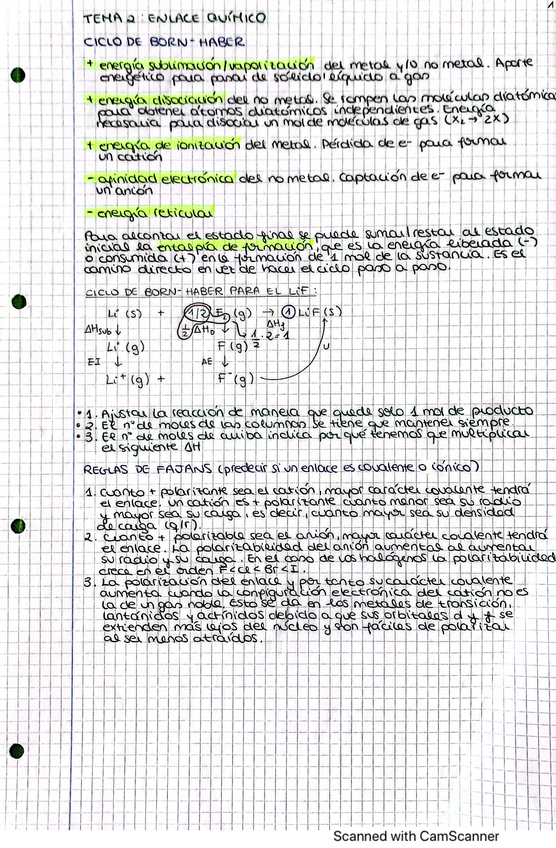 1
TEMA 2: ENLACE QUÍMICO
CICLO DE BORN-HABER
+ energía sublimación/vaporización del metal y/o no metal. Aporte
energético para pasar de sólido/líquido a gas
+ energía disociación del no metal. Se rompen las moléculas diatómicas
para obtener átomos diatómicos independientes. Energía
necesaria para disociar un mol de moléculas de gas (X₂ → 2X)
+ energía de ionización del metal. Pérdida de e- para formar
un catión
- afinidad electrónica del no metal. Captación de e- para formar
un anión
- energía reticular
Para alcanzar el estado final se puede sumar/restar al estado
inicial la entalpía de formación, que es la energía liberada (-)
o consumida (+) en la formación de 1 mol de la sustancia. Es el
camino directo en vez de hacer el ciclo paso a paso.
CICLO DE BORN-HABER PARA EL LiF:
Li (s) + 1/2 F₂ (g) → 1 LiF (s)
ΔHsub ↓ 1/2 ΔHD ↓ 1/2 · 2 = 1 ΔHf
Li (g) F (g) U
EI ↓ AE ↓
Li+ (g) + F- (g)
• 1. Ajustar la reacción de manera que quede solo 1 mol de producto
• 2. El nº de moles de las columnas se tiene que mantener siempre
• 3. El nº de moles de arriba indica por qué tenemos que multiplicar
el siguiente ΔH
REGLAS DE FAJANS (predecir si un enlace es covalente o iónico)
1. Cuanto + polarizante sea el catión, mayor carácter covalente tendrá
el enlace. Un catión es + polarizante cuanto menor sea su radio
y mayor sea su carga, es decir, cuanto mayor sea su densidad
de carga (q/r).
2. Cuanto + polarizable sea el anión, mayor carácter covalente tendrá
el enlace. La polarizabilidad del anión aumenta al aumentar
su radio y su carga. En el caso de los halógenos la polarizabilidad
crece en el orden F < Cl < Br < I.
3. La polarización del enlace y por tanto su carácter covalente
aumenta cuando la configuración electrónica del catión no es
la de un gas noble. Esto se da en los metales de transición,
lantánidos y actínidos debido a que sus orbitales d y f se
extienden más lejos del núcleo y son fáciles de polarizar
al ser menos atraídos.
Scanned with CamScanner